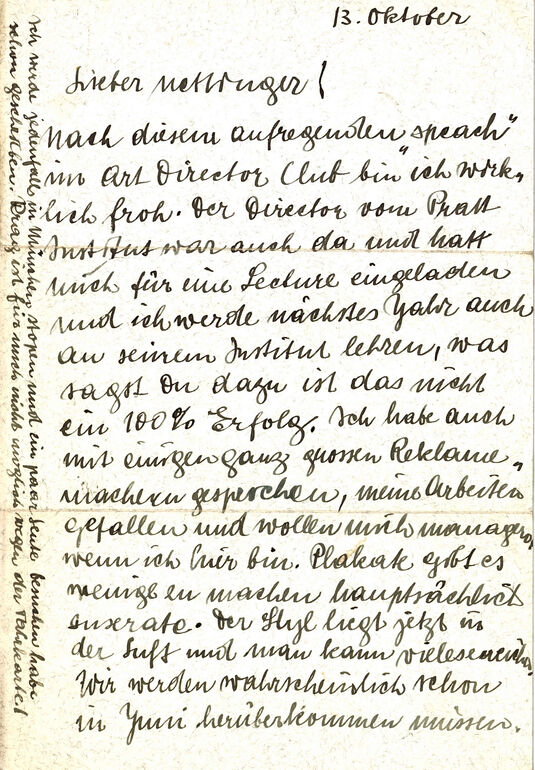 13. Oktober
Lieber Nettinger!
Nach diesem aufregenden „speach"
im Art Director Club bin ich wirk-
lich froh. Der Director vom Pratt
Institut war auch da und hatt
mich für eine Lecture eingeladen
und ich werde nächstes Yahr auch
an seinem Institut lehren, was
sagst Du dazu ist das nicht
ein 100% Erfolg. Ich habe auch
mit einigen ganz grossen Reklame-
machern gesprochen, meine Arbeiten
gefallen und wollen mich managen,
wenn ich hier bin. Plakate gibt es
wenig machen hauptsächlich
inserate. Der Styl liegt jetzt in
der Luft und man kann vieles
Wir werden wahrscheinlich schon
in Yuni herüberkommen müssen.
Ich werde jedenfalls in München stopen und ein paar Leute besuchen habe
schon geschrieben. Prag ist für mich nicht möglich wegen der